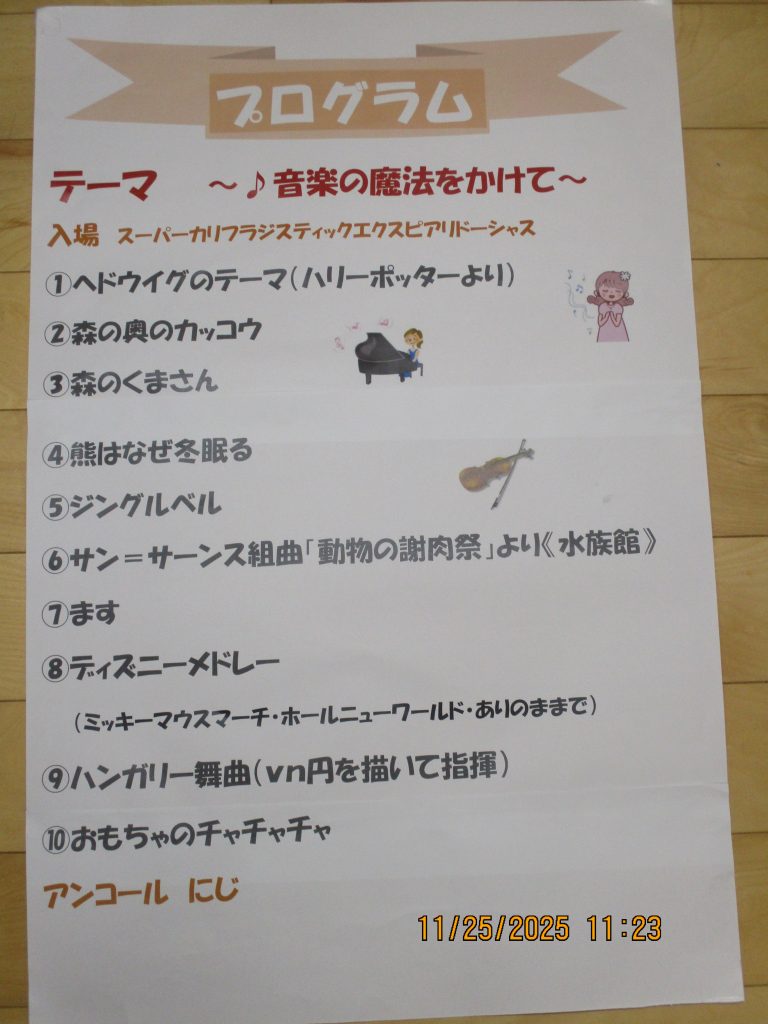 プログラム
テーマ ～♪音楽の魔法をかけて～
入場 スーパーカリフラジスティックエクスピアリドーシャス
①ヘドウイグのテーマ(ハリーポッターより)
②森の奥のカッコウ
③森のくまさん
④熊はなぜ冬眠る
⑤ジングルベル
⑥サン＝サーンス組曲「動物の謝肉祭」より《水族館》
⑦ます
⑧ディズニーメドレー
(ミッキーマウスマーチ・ホールニューワールド・ありのままで)
⑨ハンガリー舞曲(vn円を描いて指揮)
⑩おもちゃのチャチャチャ
アンコール にじ
11/25/2025 11:23